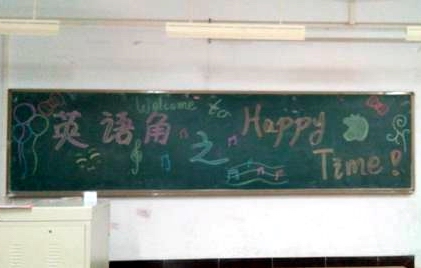 Welcome to
英语角之 Happy
Time!